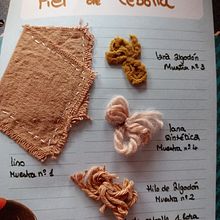 Piel de Cebolla
Lana Algodón
Muestra nº 3
Lana
Sintética
Muestra nº 4
Lino
Muestra nº 1
Hilo de Algodón
Muestra nº 2